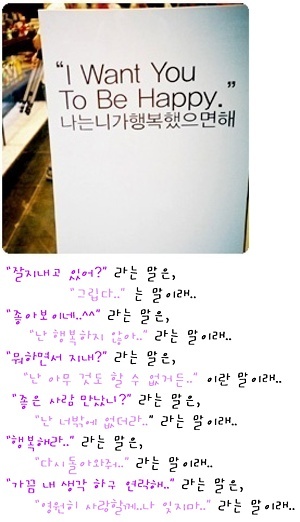 “I Want You
To Be Happy.”
나는니가행복했으면해
"잘지내고 있어?" 라는 말은,
"그립다.." 는 말이래..
"좋아보이네..^^" 라는 말은,
"난 행복하지 않아.." 라는 말이래..
"뭐하면서 지내?" 라는 말은,
"난 아무 것도 할 수 없거든.." 이란 말이래..
"좋은 사람 만났니?" 라는 말은,
"난 너밖에 없더라.." 라는 말이래..
"행복해라.." 라는 말은,
"다시돌아와줘.." 라는 말이래..
"가끔 내 생각 하구 연락해.." 라는 말은,
"영원히 사랑할께..나 잊지마.." 라는 말이래..